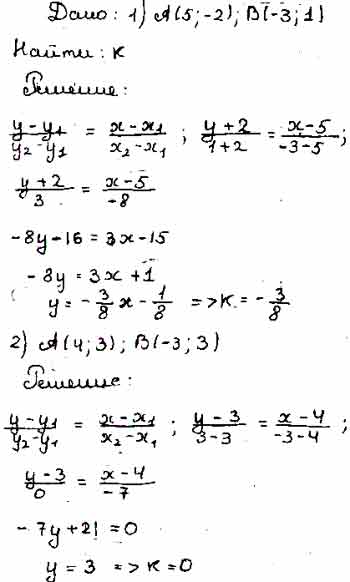 Дано: 1) A(5;-2); B(-3;1)
Найти: K
Решение:
\frac{y-y_1}{y_2-y_1} = \frac{x-x_1}{x_2-x_1} ; \frac{y+2}{1+2} = \frac{x-5}{-3-5} ;
\frac{y+2}{3} = \frac{x-5}{-8}
-8y-16 = 3x-15
-8y = 3x+1
y = -\frac{3}{8}x - \frac{1}{8} => K = -\frac{3}{8}
2) A(4;3); B(-3;3)
Решение:
\frac{y-y_1}{y_2-y_1} = \frac{x-x_1}{x_2-x_1} ; \frac{y-3}{3-3} = \frac{x-4}{-3-4} ;
\frac{y-3}{0} = \frac{x-4}{-7}
-7y+21 = 0
y = 3 => K = 0